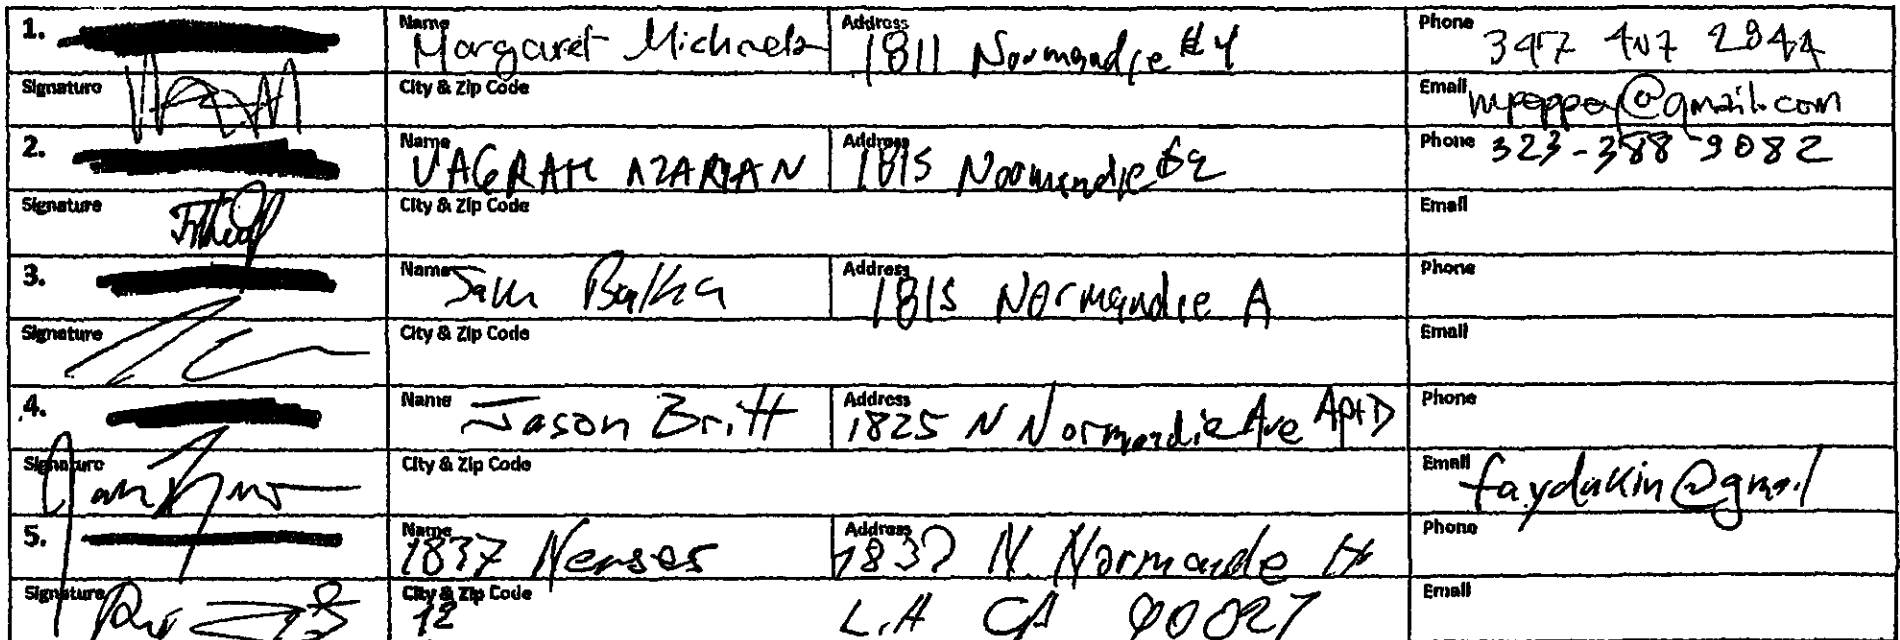 1. Name Margaret Michaels Address 1811 Normandie #4 Phone 347 407 2844
Signature City & Zip Code Email mpeppey@gmail.com
2. Name VAGRAH AZARIAN Address 1815 Normandie #2 Phone 323-388-9082
Signature City & Zip Code Email
3. Name Balka Address 1815 Normandie A Phone
Signature City & Zip Code Email
4. Name Jason Britt Address 1825 N Normandie Ave Apt D Phone
Signature City & Zip Code Email faydakin@gmail
5. Name 1837 Nerses Address 1837 N. Normande Phone
Signature City & Zip Code 12 L.A CA 90027 Email